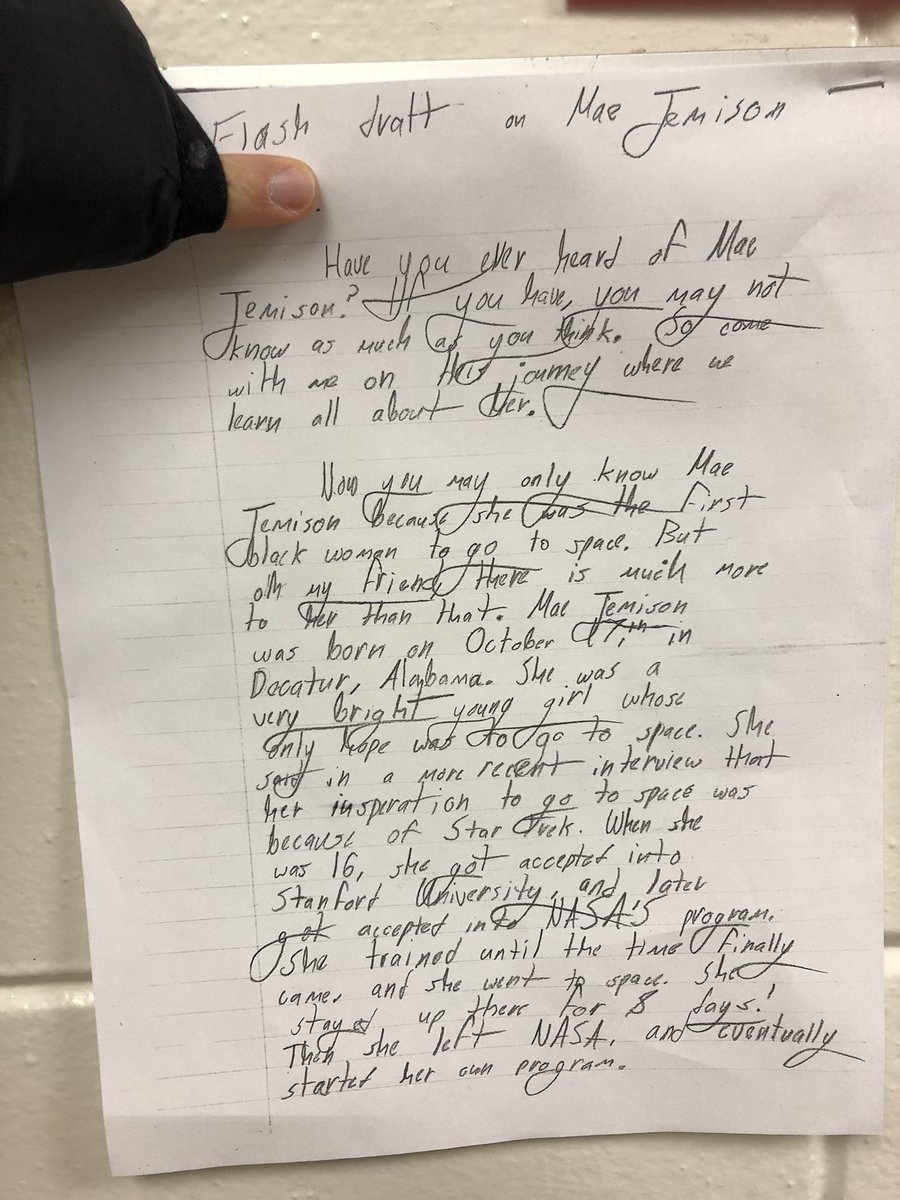 Flash draft on Mae Jemison
Have you ever heard of Mae
Jemison? If you have, you may not
know as much as you think. So come
with me on this journey where we
learn all about her.
Now you may only know Mae
Jemison because she was the first
black woman to go to space. But
oh my friend there is much more
to her than that. Mae Jemison
was born on October 17th in
Decatur, Alabama. She was a
very bright young girl whose
only hope was to go to space. She
said in a more recent interview that
her inspration to go to space was
because of Star Trek. When she
was 16, she got accepted into
Stanford University, and later
got accepted into NASA'S program.
She trained until the time finally
came, and she went to space. She
stayed up there for 8 days!
Then she left NASA, and eventually
started her own program.